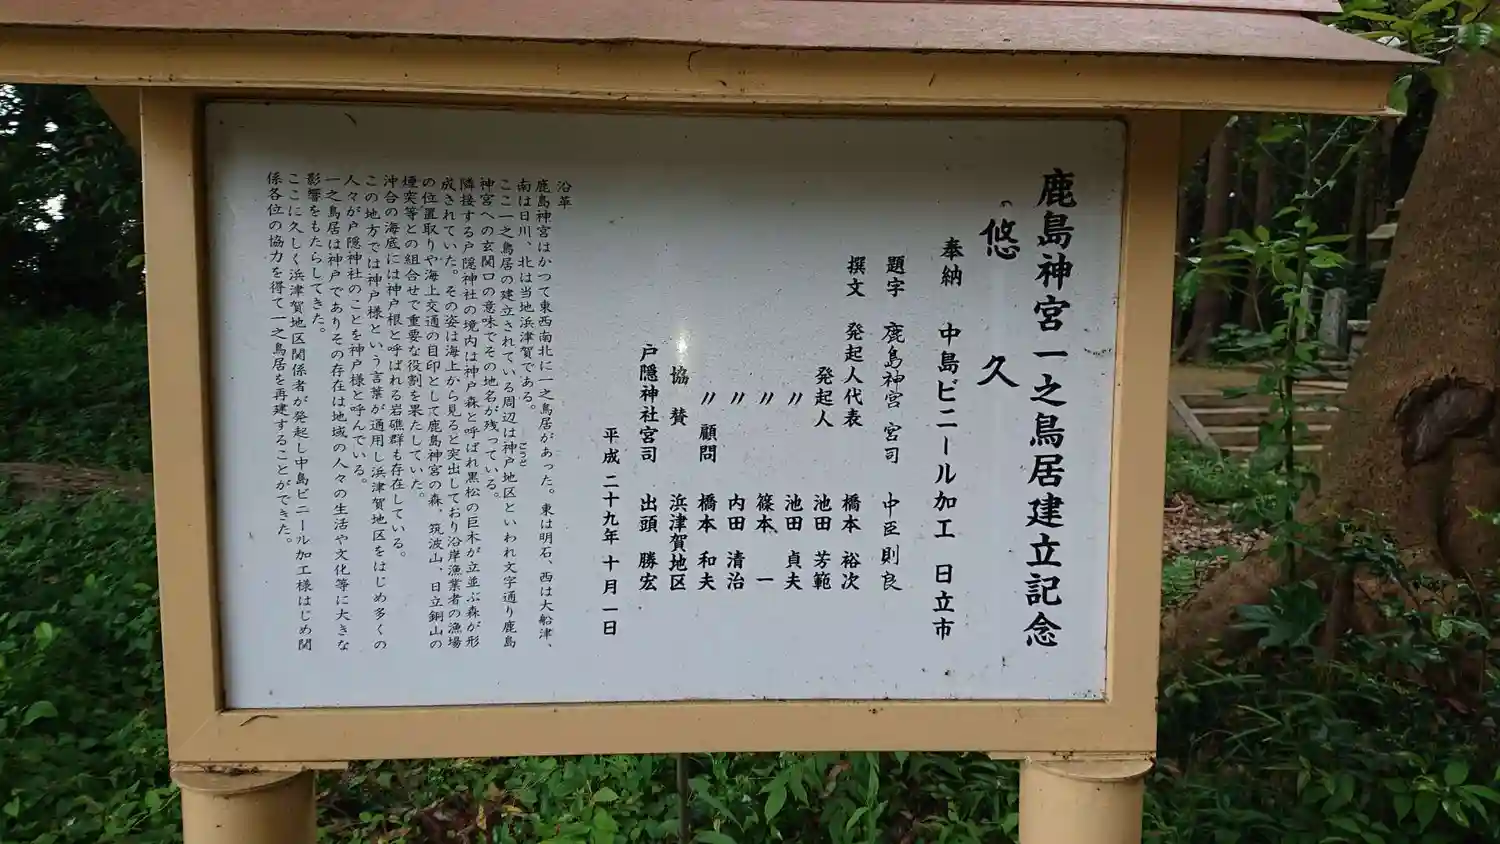 鹿島神宮一之鳥居建立記念
悠久
奉納 中島ビニール加工 日立市
題字 鹿島神宮 宮司 中臣則良
撰文 発起人代表 橋本裕次
発起人 池田芳範
〃 池田貞夫
〃 篠本一
〃 内田清治
〃 顧問 橋本和夫
協賛 浜津賀地区
戸隠神社宮司 出頭勝宏
平成二十九年十月一日
沿革
鹿島神宮はかつて東西南北に一之鳥居があった。東は明石、西は大船津、
南は日川、北は当地浜津賀である。
ここ一之鳥居の建立されている周辺は神戸地区といわれ文字通り鹿島
ごうど
神宮への玄関口の意味でその地名が残っている。
隣接する戸隠神社の境内は神戸森と呼ばれ黒松の巨木が立並ぶ森が形
成されていた。その姿は海上から見ると突出しており沿岸漁業者の漁場
の位置取りや海上交通の目印として鹿島神宮の森、筑波山、日立銅山の
煙突等との組合せで重要な役割を果たしていた。
沖合の海底には神戸根と呼ばれる岩礁群も存在している。
この地方では神戸様という言葉が通用し浜津賀地区をはじめ多くの
人々が戸隠神社のことを神戸様と呼んでいる。
一之鳥居は神戸でありその存在は地域の人々の生活や文化等に大きな
影響をもたらしてきた。
ここに久しく浜津賀地区関係者が発起し中島ビニール加工様はじめ関
係各位の協力を得て一之鳥居を再建することができた。